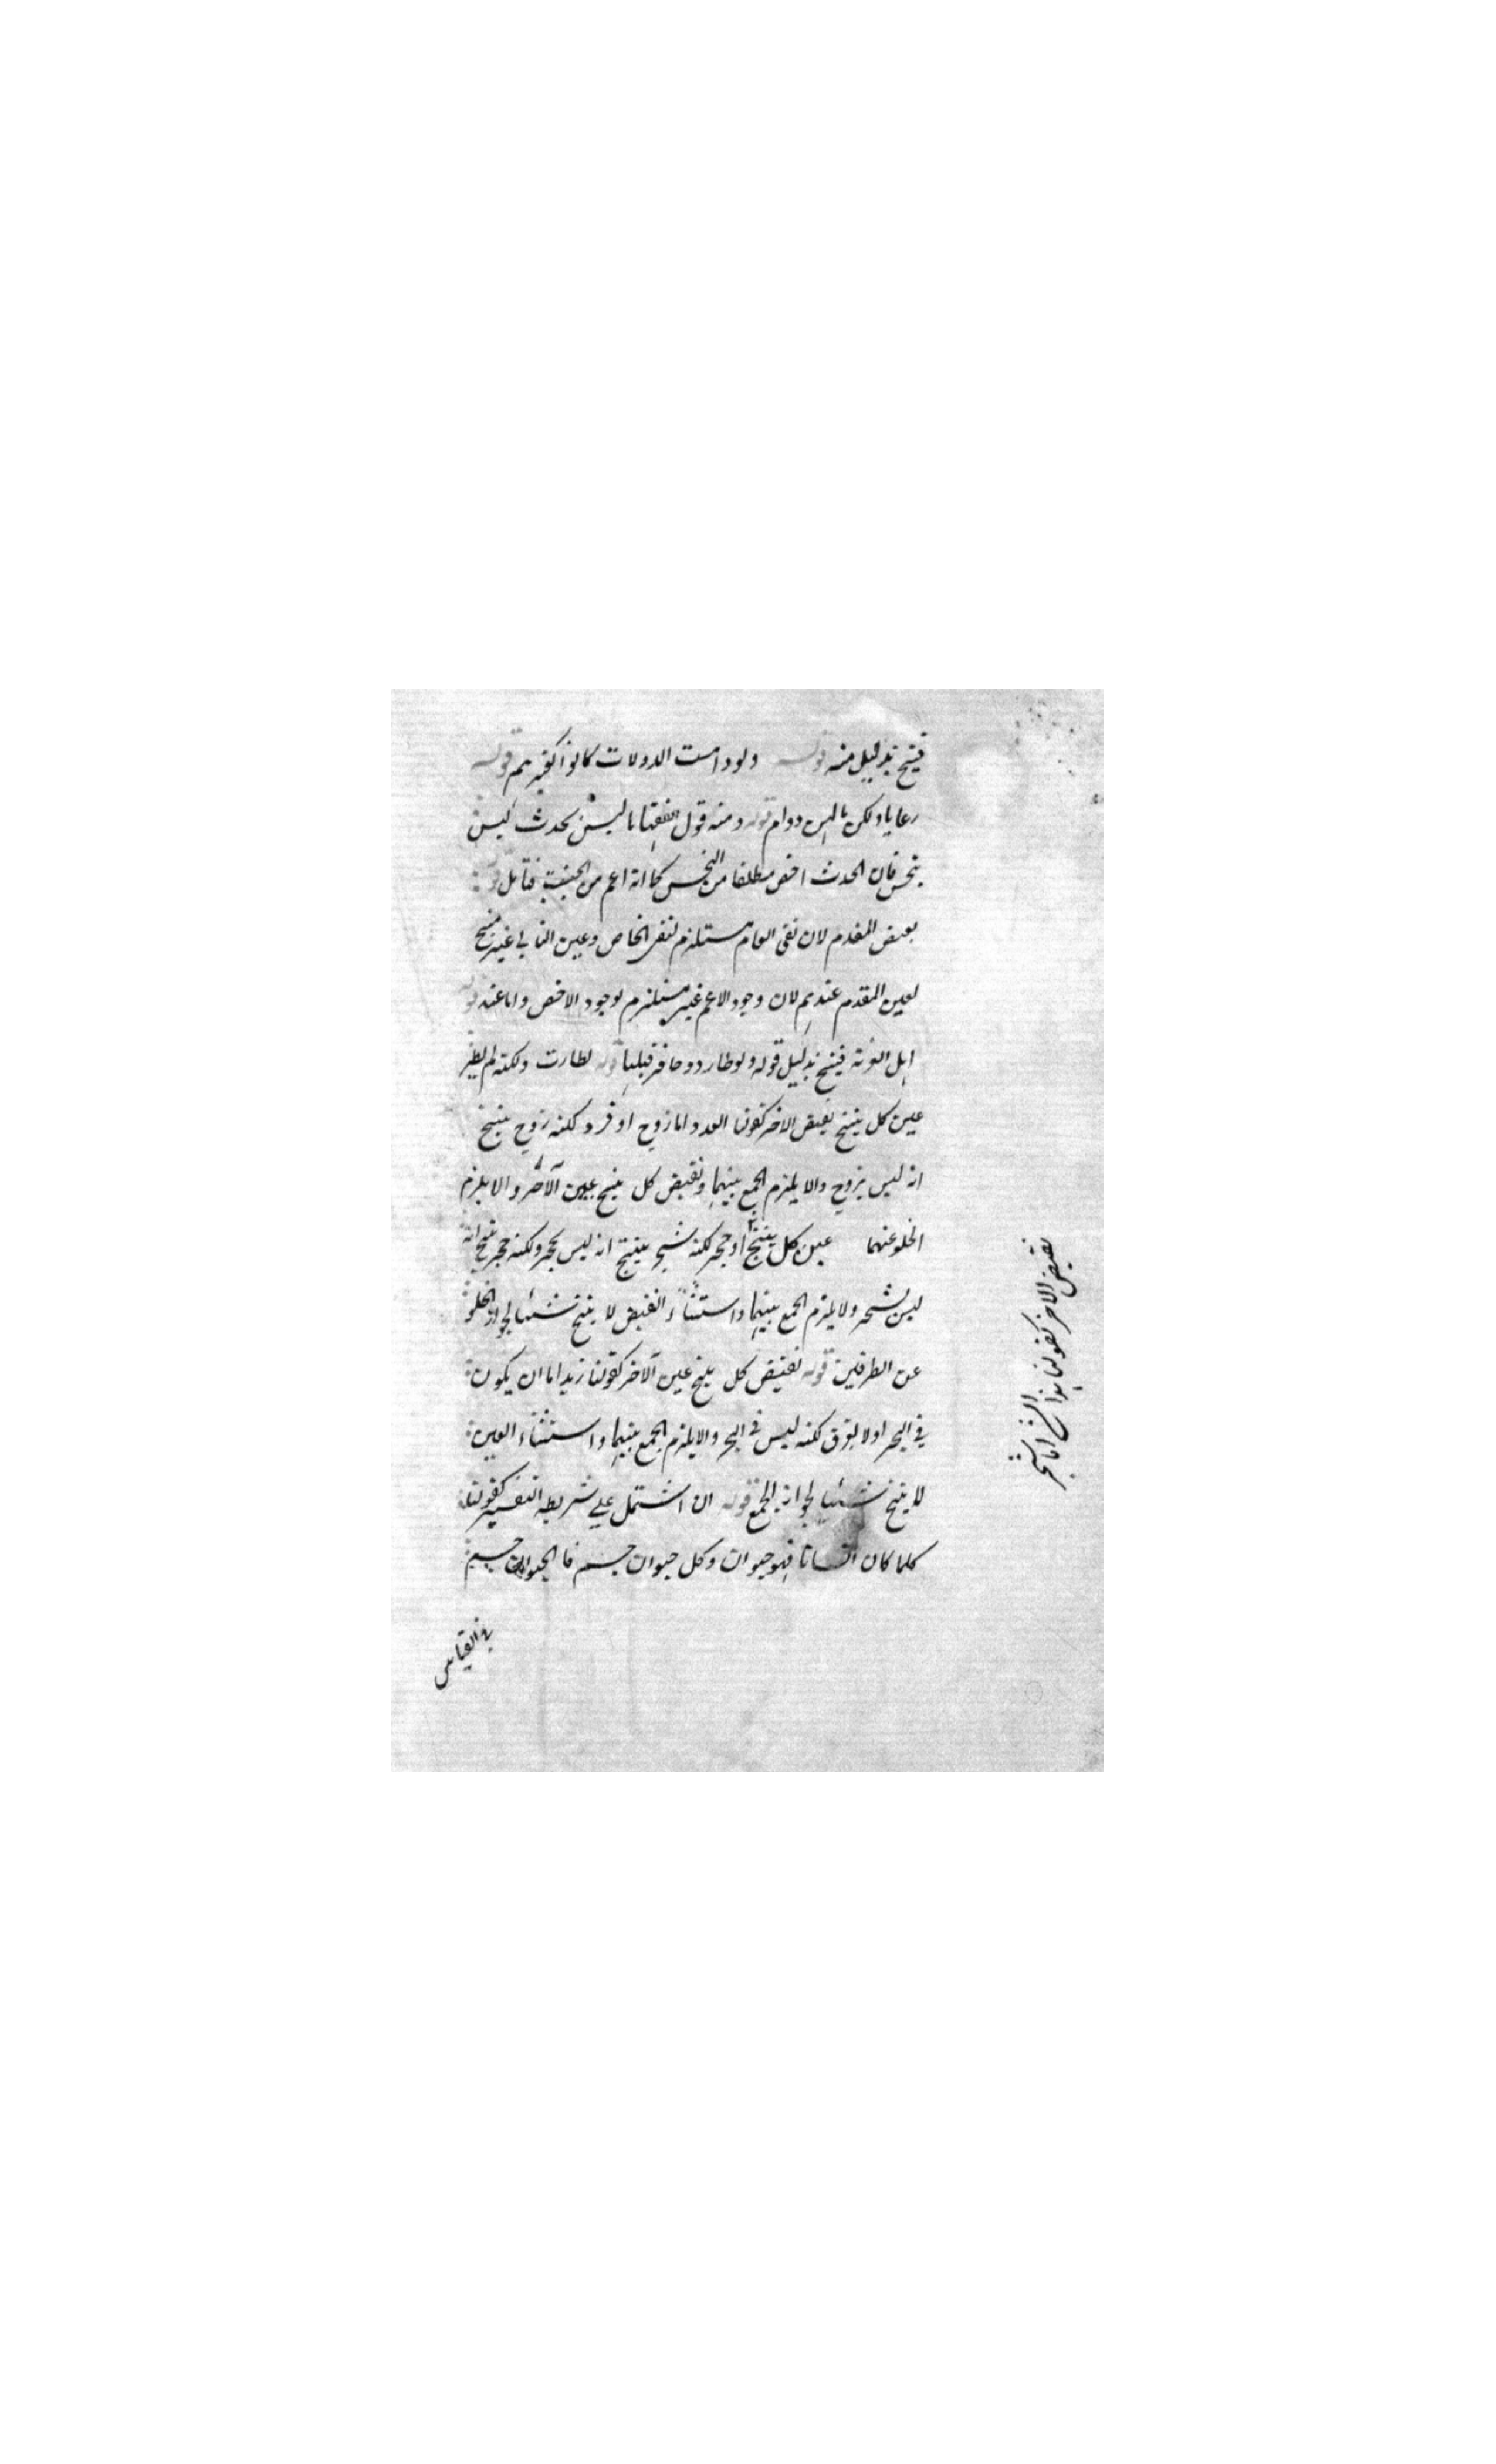 فينتج بدليل منه قوله ولو دامت الدولات كانوا كغيرهم قوله
رعايا ولكن ما لهن دوام قوله ومنه قول الفقهاء ما ليس بحدث ليس
بنجس فان الحدث اخص مطلقا من النجس كما انه اعم من فتأمل قوله
بعض المقدم لان نفى العام مستلزم لنفى الخاص وعين التالى غير منتج
لعين المقدم عندهم لان وجود الاعم غير مستلزم لوجود الاخص واما عند
اهل فينتج بدليل قوله ولو طار ذو حافر قبلها قوله لطارت ولكنه لم يطر
عين كل ينتج نقيض الاخر كقولنا العدد اما زوج او فرد لكنه زوج ينتج
انه ليس بزوج والا يلزم الجمع بينهما ونقيض كل ينتج عين الآخر والا يلزم
الخلو عنهما عين كل ينتج او حجر لكنه شجر ينتج انه ليس بحجر ولكنه حجر ينتج انه
ليس بشجر ولا يلزم الجمع بينهما واستثناء النقيض لا ينتج شيئا لجواز الخلو
عن الطرفين قوله نقيض كل ينتج عين الآخر كقولنا زيد اما ان يكون
فى البحر او لا يغرق لكنه ليس فى البحر والا يلزم الجمع بينهما واستثناء العين
لا ينتج شيئا لجواز الجمع قوله ان اشتمل على شريطة التفسير كقولنا
كلما كان انسانا فهو حيوان وكل حيوان جسم فالحيوان جسم
فى القياس
نقيض الاخر كقولنا هذا
الشئ اما شجر